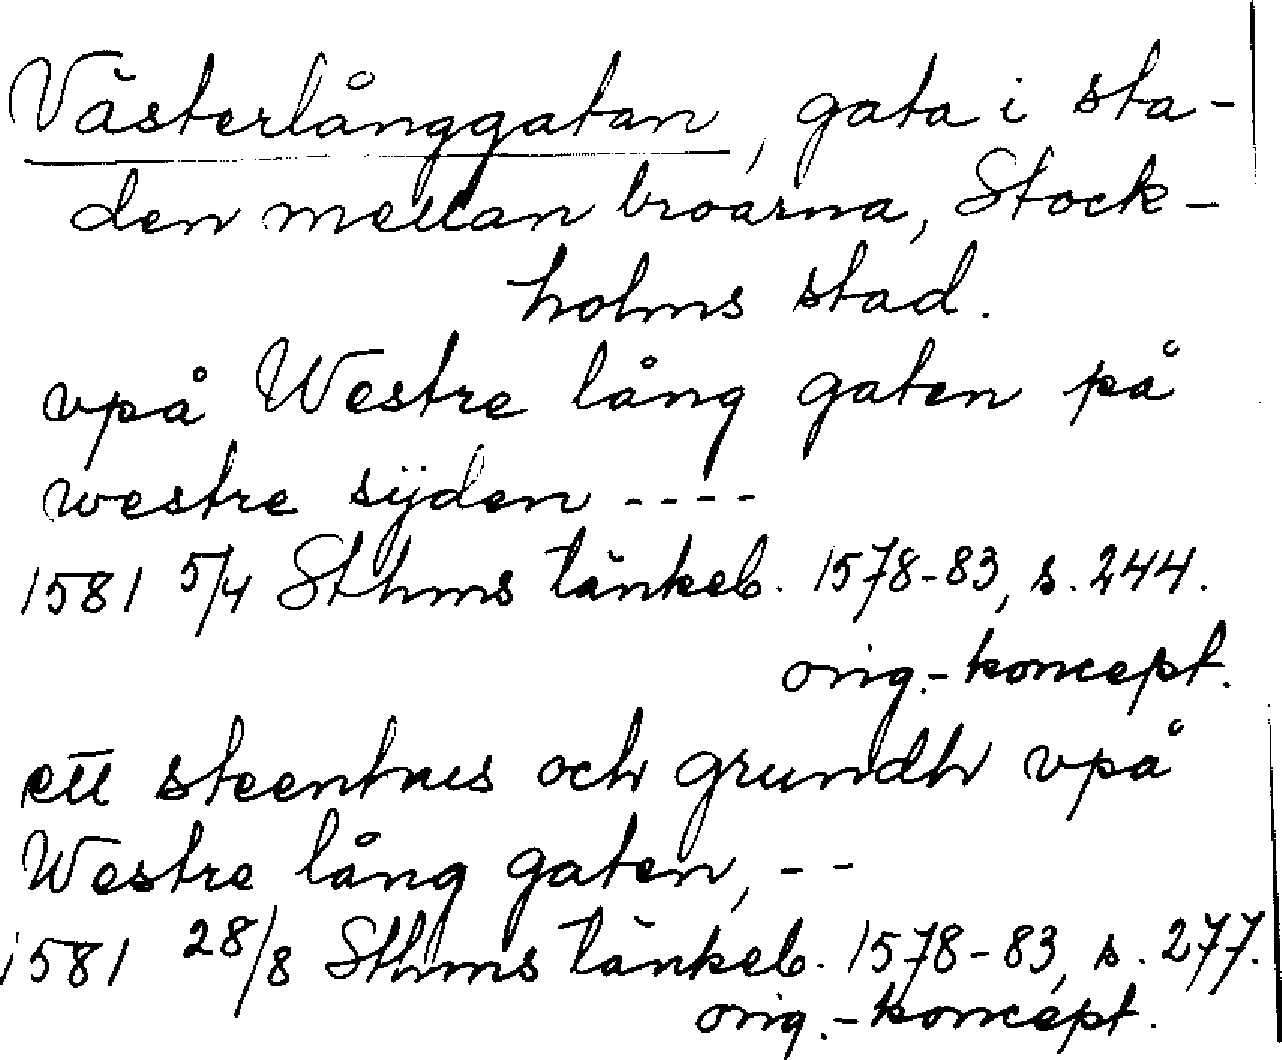 Västerlånggatan, gata i sta-
den mellan broarna, Stock-
holms stad.
vpå Westre lång gaten på
westre sÿden ----
1581 5/4 Sthms tänkeb. 1578-83, s. 244.
orig.-koncept.
ett steenhus och grundh vpå
Westre lång gaten, --
1581 28/8 Sthms tänkeb. 1578-83, s. 277.
orig.-koncept.